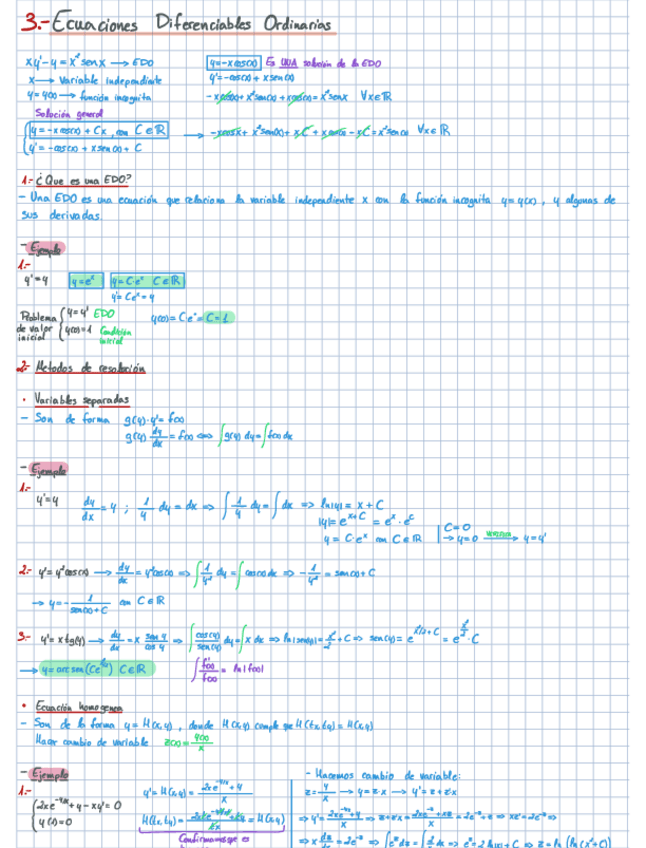 3.- Ecuaciones Diferenciables Ordinarias
xy' - y = x² senx → EDO
x → Variable independiente
y = y(x) → función incognita
y = -x cos(x) Es UNA solución de la EDO
y' = -cos(x) + x sen(x)
-x cos(x) + x² sen(x) + x cos(x) = x² senx ∀x∈ℝ
Solución general
y = -x cos(x) + Cx, con C∈ℝ → -x cosx + x² sen(x) + xC + x cosx - xC = x² sen(x) ∀x∈ℝ
y' = -cos(x) + x sen(x) + C
1.- ¿Que es una EDO?
- Una EDO es una ecuación que relaciona la variable independiente x con la función incognita y = y(x), y algunas de
sus derivadas.
- Ejemplo
1.-
y' = y y = eˣ y = C·eˣ C∈ℝ
y' = Ceˣ = y
Problema de valor inicial { y = y' EDO
y(0) = 1 Condición inicial
y(0) = C·e° = C = 1
2.- Metodos de resolución
· Variables separadas
- Son de forma g(y)·y' = f(x)
g(y) dy/dx = f(x) ⟺ ∫g(y) dy = ∫f(x) dx
- Ejemplo
1.-
y' = y dy/dx = y ; 1/y dy = dx ⇒ ∫ 1/y dy = ∫ dx ⇒ ln|y| = x + C
|y| = e^(x+C) = eˣ · e^C
y = C·eˣ con C∈ℝ | C = 0
→ y = 0 → y = y'
2.- y' = y² cos(x) → dy/dx = y² cos(x) ⇒ ∫ 1/y² dy = ∫ cos(x) dx ⇒ - 1/y = sen(x) + C
→ y = - 1/(sen(x) + C) con C∈ℝ
3.- y' = x tg(y) → dy/dx = x sen y/cos y ⇒ ∫ cos(y)/sen(y) dy = ∫ x dx ⇒ ln|sen(y)| = x²/2 + C ⇒ sen(y) = e^(x²/2 + C) = e^(x²/2) · C
→ y = arcsen(Ce^(x²/2)) C∈ℝ ∫ f'(x)/f(x) = ln|f(x)|
· Ecuación homogenea
- Son de la forma y = H(x,y), donde H(x,y) cumple que H(tx,ty) = H(x,y)
Hacer cambio de variable z(x) = y(x)/x
- Ejemplo
1.-
{ 2xe^(-y/x) + y - xy' = 0
y(1) = 0
y' = H(x,y) = (2xe^(-y/x) + y)/x
H(tx,ty) = = H(x,y)
Confirmamos que es
- Hacemos cambio de variable:
z = y/x → y = z·x → y' = z + z'x
⇒ y' = (2xe^(-y/x) + y)/x ⇒ z + z'x = (2xe^(-z) + xz)/x = 2e^(-z) + z ⇒ xz' = 2e^(-z) ⇒
⇒ x dz/dx = 2e^(-z) ⇒ ∫ e^z dz = ∫ 2/x dx ⇒ e^z = 2 ln|x| + C ⇒ z = ln